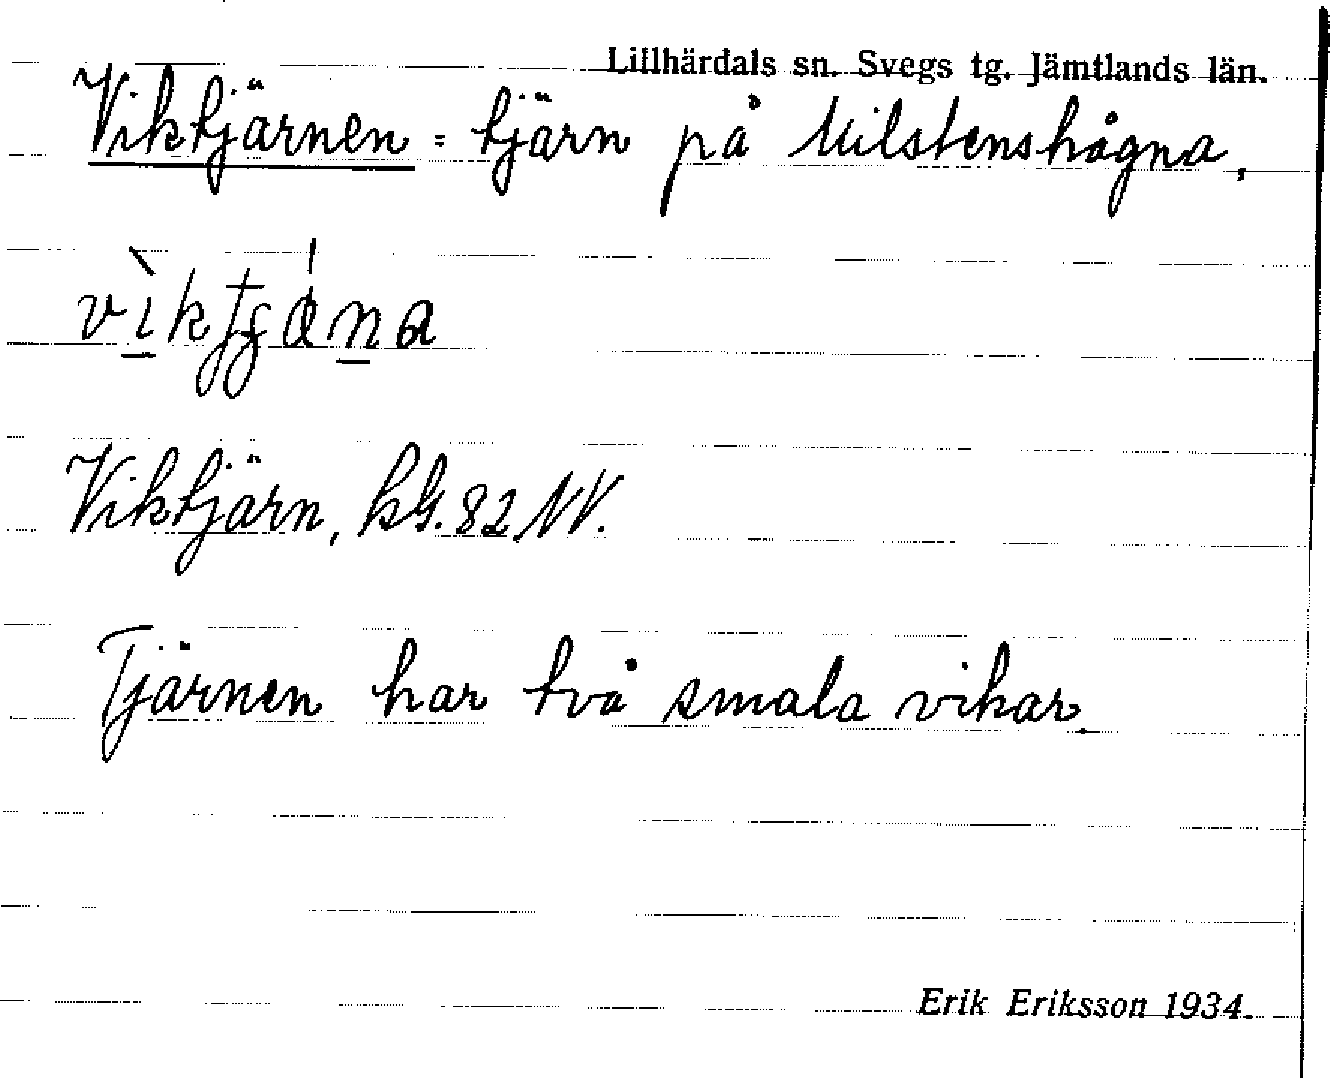 Lillhärdals sn. Svegs tg. Jämtlands län.
Viktjärnen = tjärn på Milstenshågna,
Viktjärn, kbl. 82 NV.
Tjärnen har två smala vikar.
Erik Eriksson 1934.